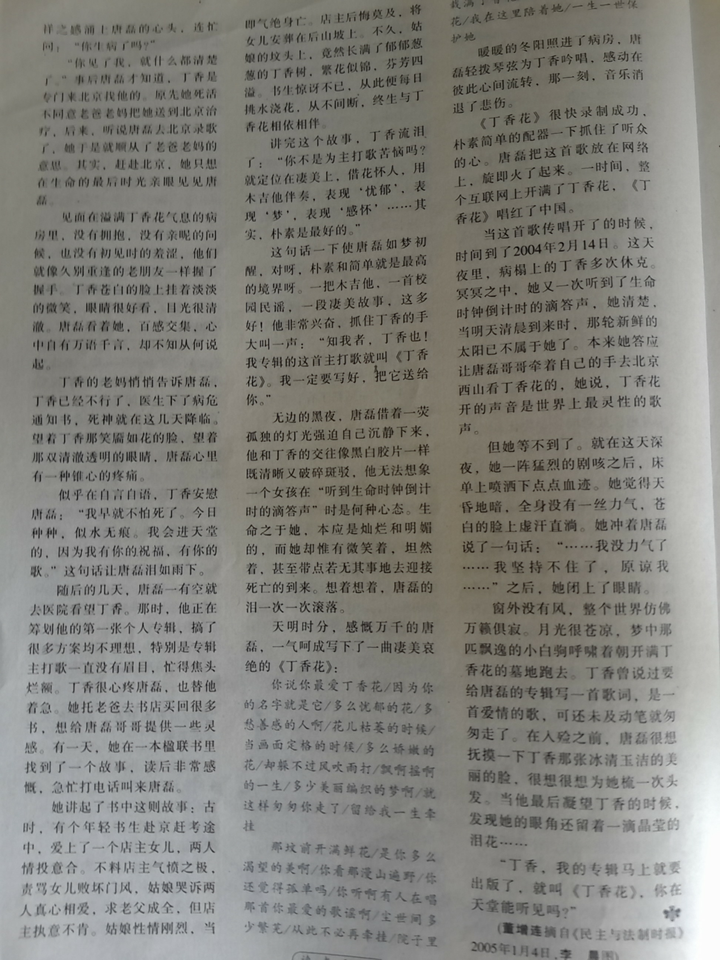 样之感涌上唐磊的心头，连忙
问：“你生病了吗？”
“你见了我，就什么都清楚
了。”事后唐磊才知道，丁香是
专门来北京找他的。原先她死活
不同意老爸老妈把她送到北京治
疗，后来，听说唐磊去北京录歌
了，她于是就顺从了老爸老妈的
意思。其实，赶赴北京，她只想
在生命的最后时光亲眼见见唐
磊。
见面在溢满丁香花气息的病
房里，没有拥抱，没有亲昵的问
候，也没有初见时的羞涩，他们
就像久别重逢的老朋友一样握了
握手。丁香苍白的脸上挂着淡淡
的微笑，眼睛很好看，目光很清
澈。唐磊看着她，百感交集，心
中自有万语千言，却不知从何说
起。
丁香的老妈悄悄告诉唐磊，
丁香已经不行了，医生下了病危
通知书，死神就在这几天降临。
望着丁香那笑靥如花的脸，望着
那双清澈透明的眼睛，唐磊心里
有一种锥心的疼痛。
似乎在自言自语，丁香安慰
唐磊：“我早就不怕死了。今日
种种，似水无痕。我会进天堂
的，因为我有你的祝福，有你的
歌。”这句话让唐磊泪如雨下。
随后的几天，唐磊一有空就
去医院看望丁香。那时，他正在
筹划他的第一张个人专辑，搞了
很多方案均不理想，特别是专辑
主打歌一直没有眉目，忙得焦头
烂额。丁香很心疼唐磊，也替他
着急。她托老爸去书店买回很多
书，想给唐磊哥哥提供一些灵
感。有一天，她在一本楹联书里
找到了一个故事，读后非常感
慨，急忙打电话叫来唐磊。
她讲起了书中这则故事：古
时，有个年轻书生赴京赶考途
中，爱上了一个店主女儿，两人
情投意合。不料店主气愤之极，
责骂女儿败坏门风，姑娘哭诉两
人真心相爱，求老父成全，但店
主执意不肯。姑娘性情刚烈，当
即气绝身亡。店主后悔莫及，将
女儿安葬在后山坡上。不久，姑
娘的坟头上，竟然长满了郁郁葱
葱的丁香树，繁花似锦，芬芳四
溢。书生惊讶不已，从此便每日
挑水浇花，从不间断，终生与丁
香花相依相伴。
讲完这个故事，丁香流泪
了：“你不是为主打歌苦恼吗？
就定位在凄美上，借花怀人，用
木吉他伴奏，表现‘忧郁’，表
现‘梦’，表现‘感怀’……其
实，朴素是最好的。”
这句话一下使唐磊如梦初
醒，对呀，朴素和简单就是最高
的境界呀。一把木吉他，一首校
园民谣，一段凄美故事，这多
好！他非常兴奋，抓住丁香的手
大叫一声：“知我者，丁香也！
我专辑的这首主打歌就叫《丁香
花》。我一定要写好，把它送给
你。”
无边的黑夜，唐磊借着一荧
孤独的灯光强迫自己沉静下来，
他和丁香的交往像黑白胶片一样
既清晰又破碎斑驳，他无法想象
一个女孩在“听到生命时钟倒计
时的滴答声”时是何种心态。生
命之于她，本应是灿烂和明媚
的，而她却惟有微笑着，坦然
着，甚至带点若无其事地去迎接
死亡的到来。想着想着，唐磊的
泪一次一次滚落。
天明时分，感慨万千的唐
磊，一气呵成写下了一曲凄美哀
绝的《丁香花》：
你说你最爱丁香花/因为你
的名字就是它/多么忧郁的花/多
愁善感的人啊/花儿枯萎的时候/
当画面定格的时候/多么娇嫩的
花/却躲不过风吹雨打/飘啊摇啊
的一生/多少美丽编织的梦啊/就
这样匆匆你走了/留给我一生牵
挂
那坟前开满鲜花/是你多么
渴望的美啊/你看那漫山遍野/你
还觉得孤单吗/你听啊有人在唱
那首你最爱的歌谣啊/尘世间多
少繁芜/从此不必再牵挂/院子里
花/我在这里陪着她/一生一世保
护她
暖暖的冬阳照进了病房，唐
磊轻拨琴弦为丁香吟唱，感动在
彼此心间流转，那一刻，音乐消
退了悲伤。
《丁香花》很快录制成功，
朴素简单的配器一下抓住了听众
的心。唐磊把这首歌放在网络
上，旋即火了起来。一时间，整
个互联网上开满了丁香花，《丁
香花》唱红了中国。
当这首歌传唱开了的时候，
时间到了2004年2月14日。这天
夜里，病榻上的丁香多次休克。
冥冥之中，她又一次听到了生命
时钟倒计时的滴答声，她清楚，
当明天清晨到来时，那轮新鲜的
太阳已不属于她了。本来她答应
让唐磊哥哥牵着自己的手去北京
西山看丁香花的，她说，丁香花
开的声音是世界上最灵性的歌
声。
但她等不到了。就在这天深
夜，她一阵猛烈的剧咳之后，床
单上喷洒下点点血迹。她觉得天
昏地暗，全身没有一丝力气，苍
白的脸上虚汗直滴。她冲着唐磊
说了一句话：“……我没力气了
……我坚持不住了，原谅我
……”之后，她闭上了眼睛。
窗外没有风，整个世界仿佛
万籁俱寂。月光很苍凉，梦中那
匹飘逸的小白驹呼啸着朝开满丁
香花的墓地跑去。丁香曾说过要
给唐磊的专辑写一首歌词，是一
首爱情的歌，可还未及动笔就匆
匆走了。在人殓之前，唐磊很想
抚摸一下丁香那张冰清玉洁的美
丽的脸，很想很想为她梳一次头
发。当他最后凝望丁香的时候，
发现她的眼角还留着一滴晶莹的
泪花……
“丁香，我的专辑马上就要
出版了，就叫《丁香花》，你在
天堂能听见吗？”
（董增连摘自《民主与法制时报》
2005年1月4日，李 晨图）